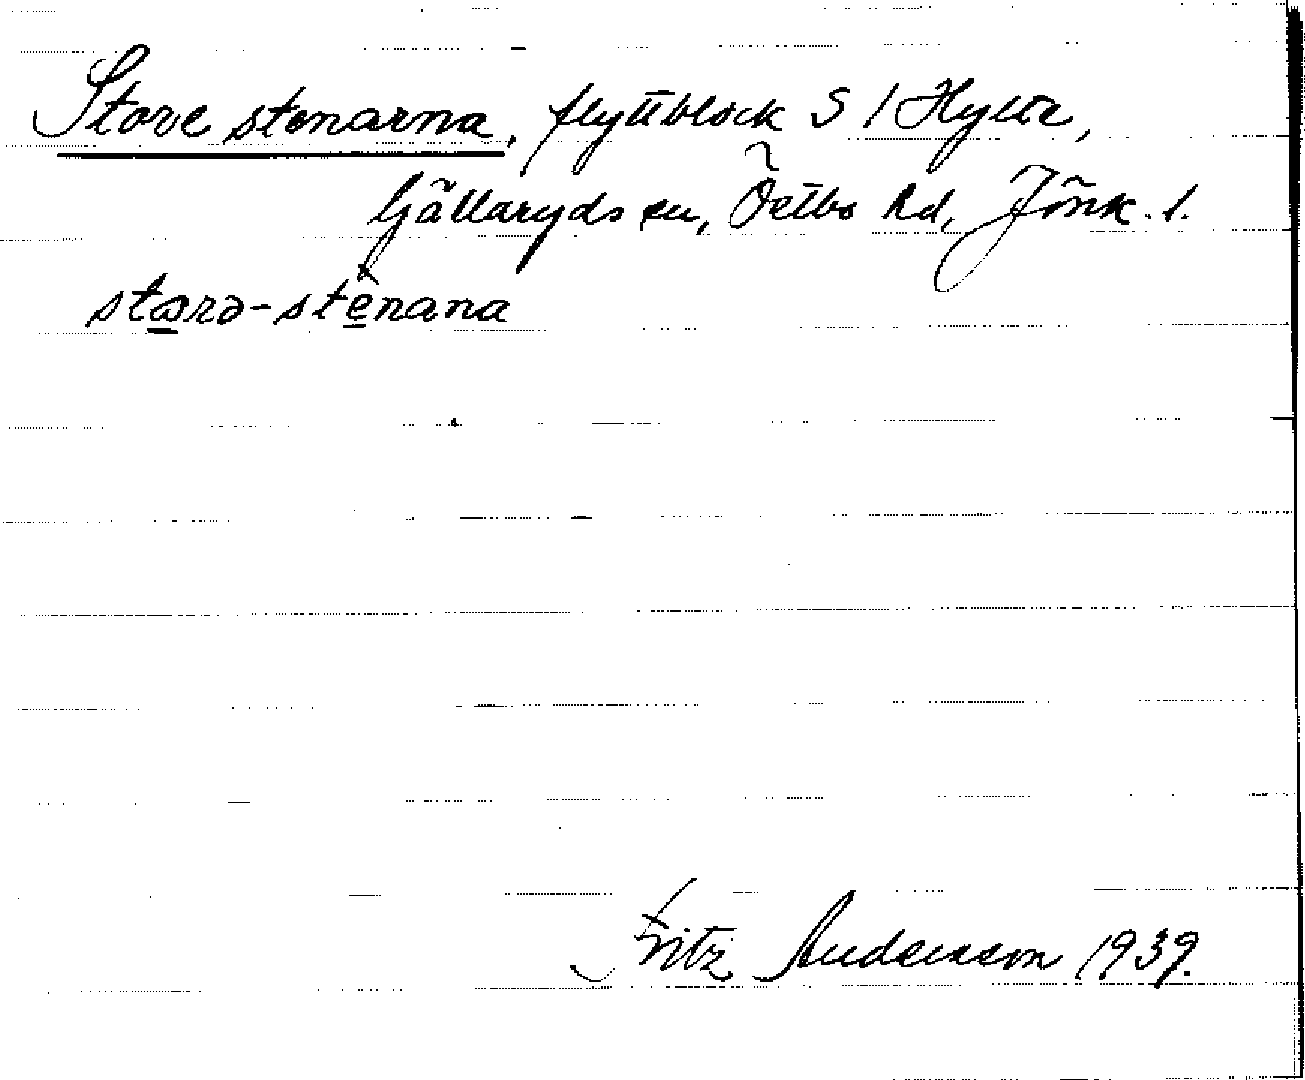 Store stenarna, flyttblock S / Hylte,
Gällaryds sn, Östbo hd, Jönk. l.
storə-stènana
Fritz Andersson 1939.